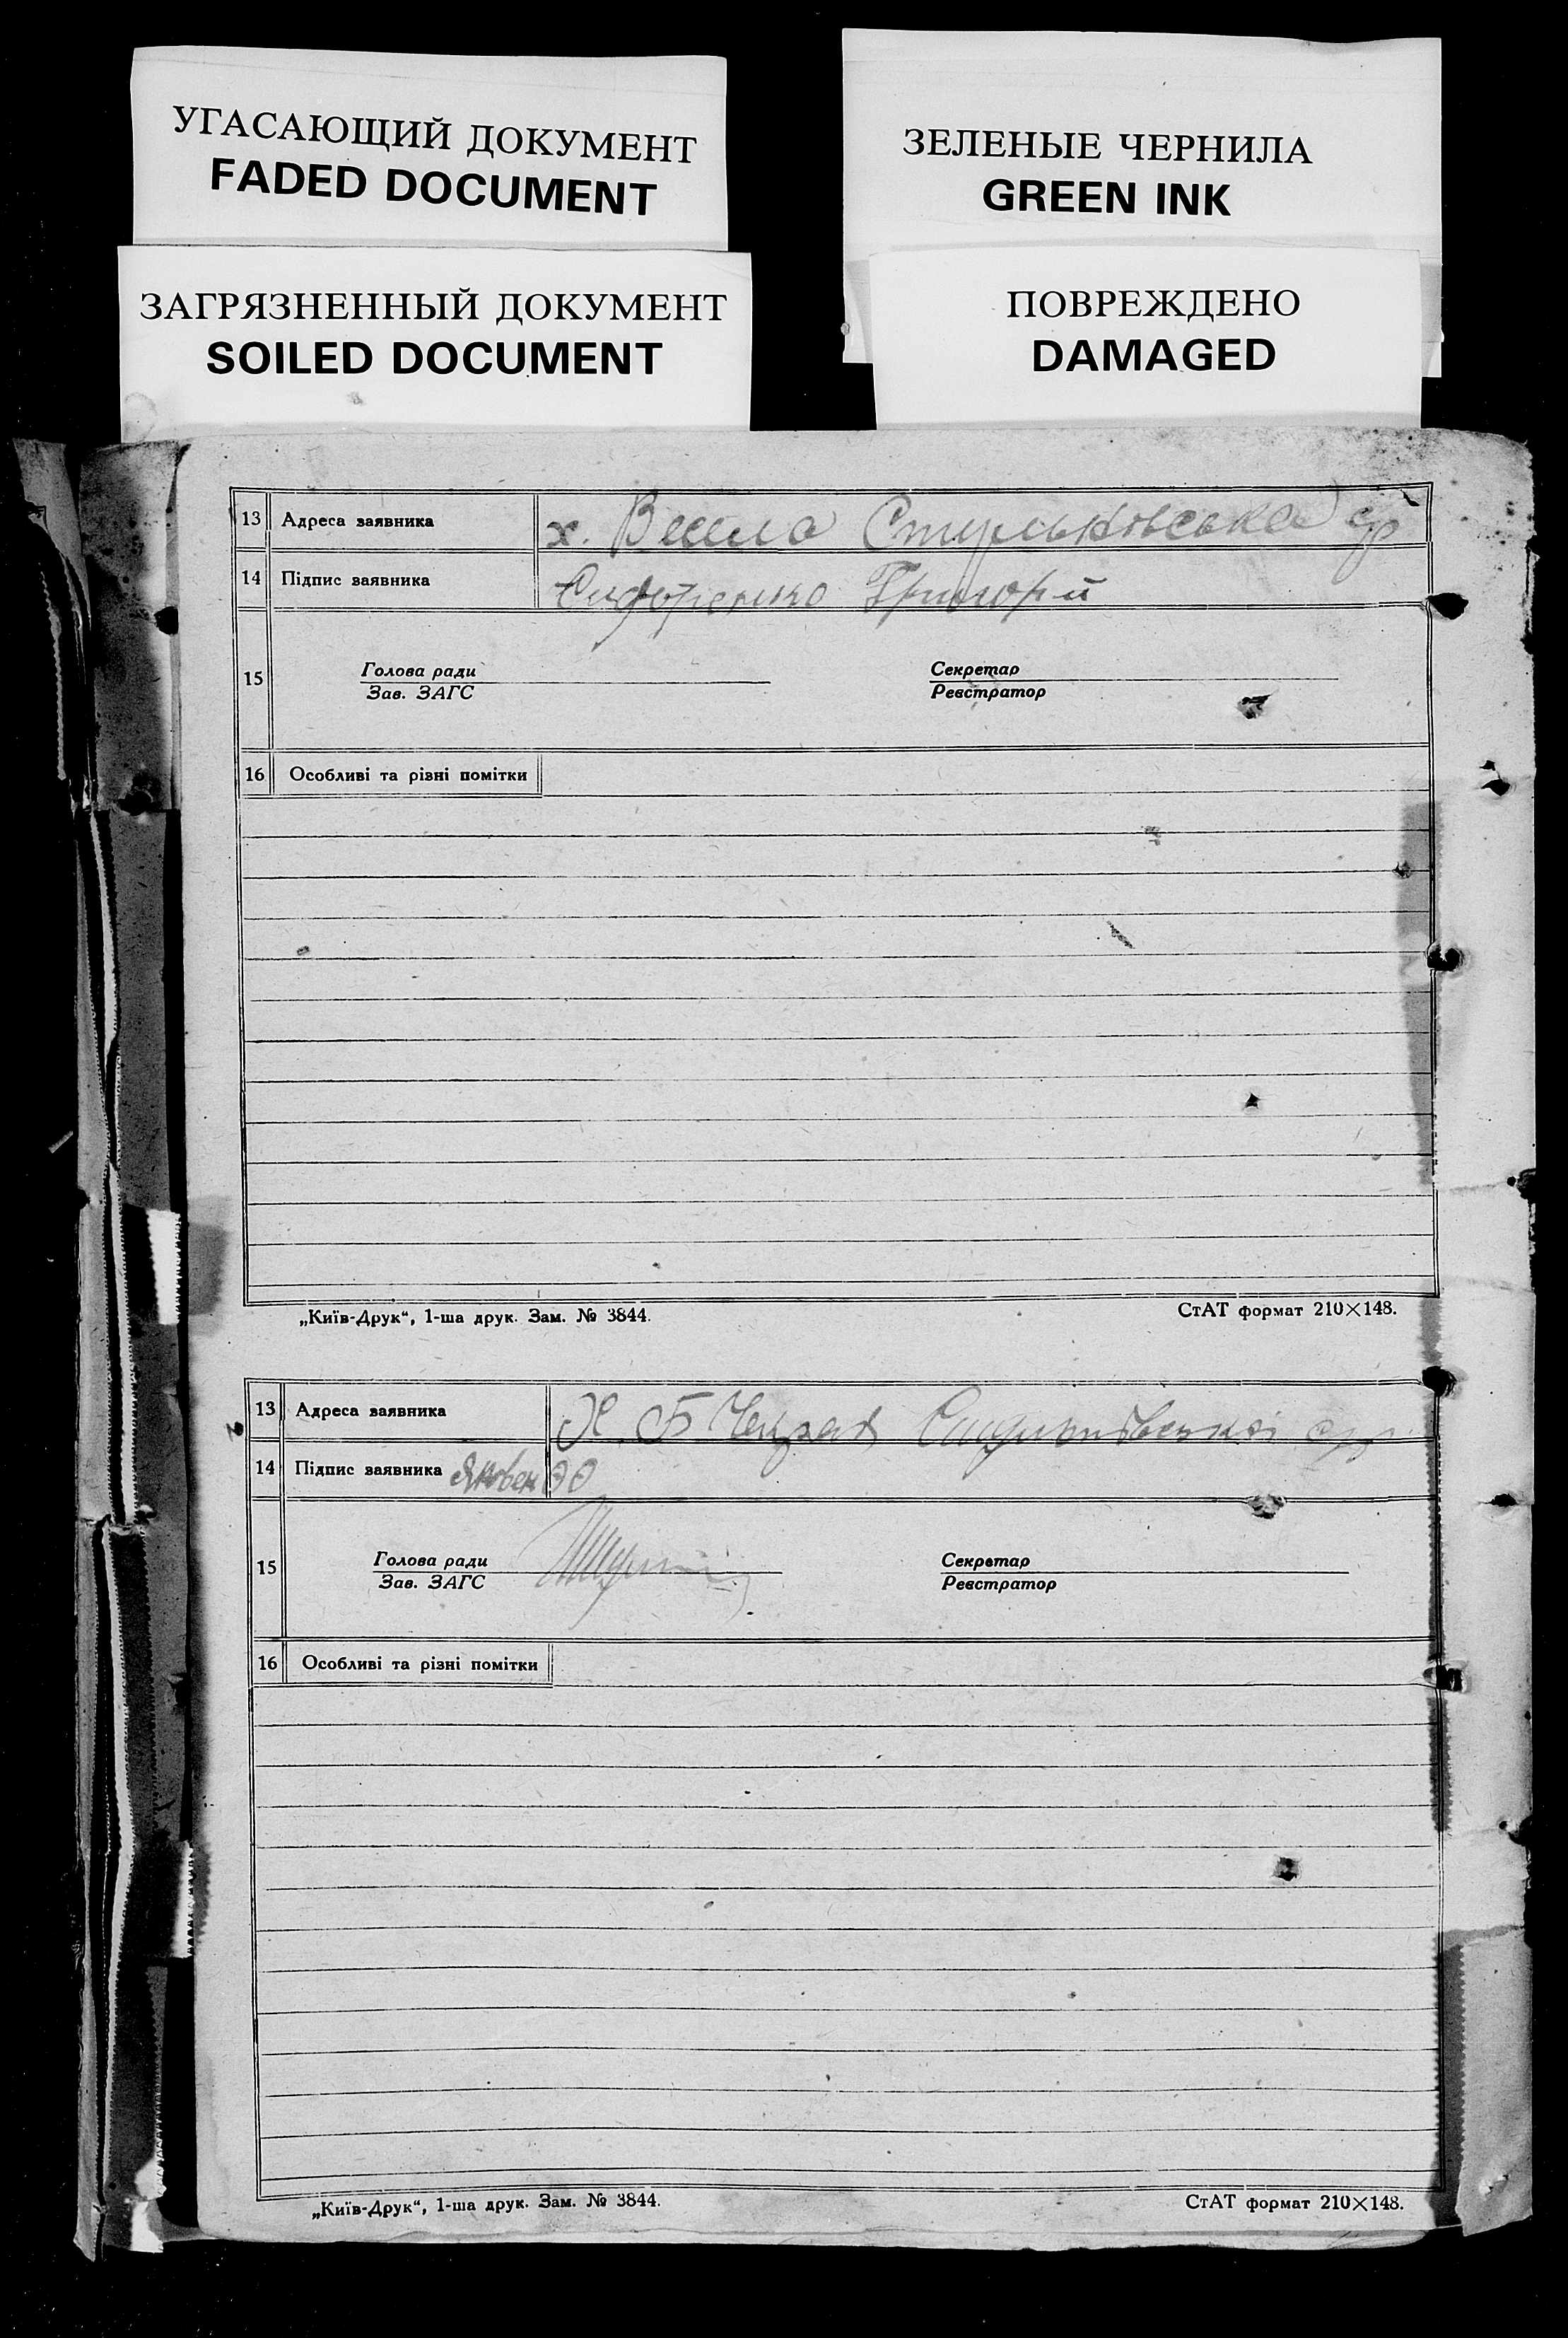 УГАСАЮЩИЙ ДОКУМЕНТ
FADED DOCUMENT
ЗЕЛЕНЫЕ ЧЕРНИЛА
GREEN INK
ЗАГРЯЗНЕННЫЙ ДОКУМЕНТ
SOILED DOCUMENT
ПОВРЕЖДЕНО
DAMAGED
13 Адреса заявника х. ср
14 Підпис заявника Григорій
15 Голова ради Секретар
Зав. ЗАГС Реєстратор
16 Особливі та різні помітки
„Київ-Друк“, 1-ша друк. Зам. № 3844. СтАТ формат 210×148.
13 Адреса заявника Х Б
14 Підпис заявника
15 Голова ради Секретар
Зав. ЗАГС Реєстратор
16 Особливі та різні помітки
„Київ-Друк“, 1-ша друк. Зам. № 3844. СтАТ формат 210×148.